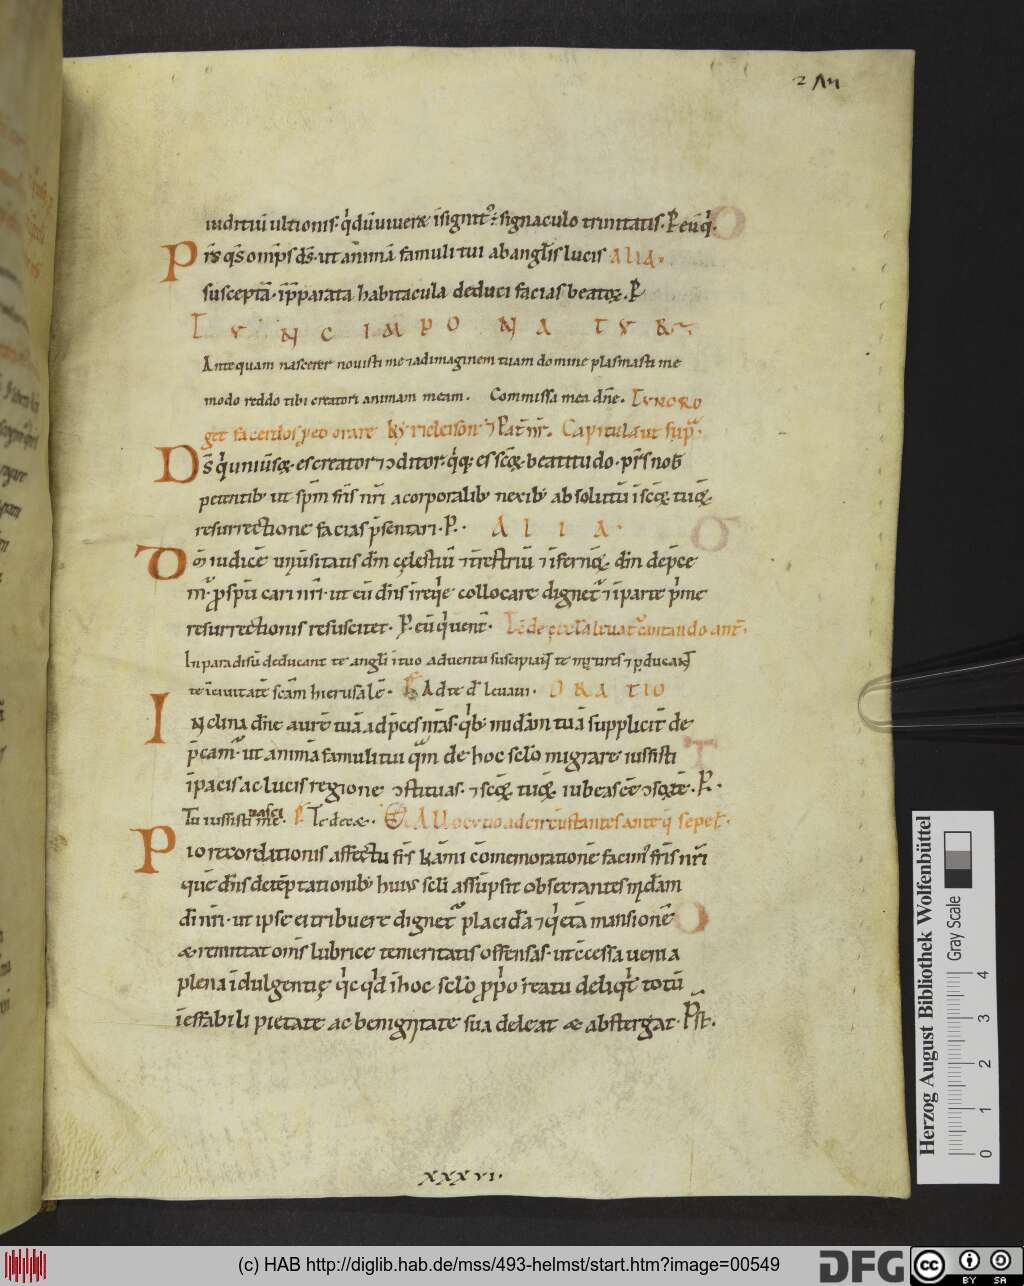 iudiciū ultionis· q̇dū uiueret īsignit᷒ ē signaculo trinitatis· P eūq̇·
Pr̄s q̄s om̄ps ds̄· ut animā famuli tui ab angl̄is lucis Alia·
susceptā· ī p̄parata habitacula deduci facias beatoꝝ· P
TUNC IMPONATUR
Antequam nascerer novisti me ⁊ ad imaginem tuam domine plasmasti me
modo reddo tibi creatori animam meam· Commissa mea dn̄e·
get sacerdos p eo orare kyrieleison ⁊ Pat̄ nr̄· Capitula ut sup̄·
Ds̄ q̇ uniūsoꝝ· es creator ⁊ ɔditor· q̇q; es scōꝝ beatitudo· pr̄s nob̄
petentib; ut spm̄ fr̄is nr̄i a corporalib; nexib; absolutū ī scōꝝ tuoꝝ·
resurrectione facias p̄sentari· P· ALIA·
Dm̄ iudicē uniūsitatis dm̄ cęlestiū ⁊ t̄restriū ⁊ īfernoꝝ· dm̄ dep̄ce
m᷒ ꝓ spū cari nr̄i· ut eū dn̄s ī req̇e collocare dignet᷒ ⁊ ī parte ṗme
resurrectionis resuscitet· P· eūq̇ uent᷒·
In paradisū deducant te angl̄i ī tuo adventu suscipiant te mr̄tires ⁊ p̄ducant
te ī civitatē scām hierusalē· Ad te d̄ levavi· ORATIO
Inclina dn̄e aurē tuā ad p̄ces nr̄as· q̇b; mīdiam tuā supplicit᷒ de
p̄cam᷒ ut animā famuli tui quā de hoc sclo migrare iussisti
ī pacis ac lucis regione ɔstituas· ⁊ scōꝝ tuoꝝ iubeas eē ɔsorte· P·
Tu iussisti nasci me· P· Te decet· Allocutio ad circūstantes anteq̄ sepel̄·
Pio recordationis affectu fr̄s karmi cōmemorationē facim᷒ fr̄is nr̄i
quē dn̄s de tēptationib; huius scli assūpsit obsecrantes mīdiam
di nr̄i· ut ipse ei tribuere dignet᷒ placidā ⁊ q̇etā mansionē
& remittat om̄s lubrice temeritatis offensas· ut ɔcessa uenia
plena īdulgentię q̇cq̇d ī hoc sclo ꝓp̄o reatu deliq̇t totū
īeffabili pietate ac benignitate sua deleat & abstergat· P̄st·
XXXVI·
Herzog August Bibliothek Wolfenbüttel
Gray Scale
0 1 2 3 4
(c) HAB http://diglib.hab.de/mss/493-helmst/start.htm?image=00549
DFG
cc BY SA